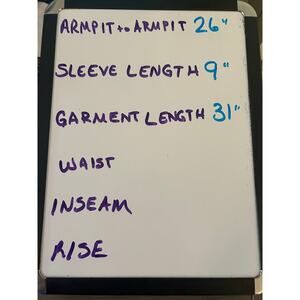 ARMPIT to ARMPIT 26"
SLEEVE LENGTH 9"
GARMENT LENGTH 31"
WAIST
INSEAM
RISE